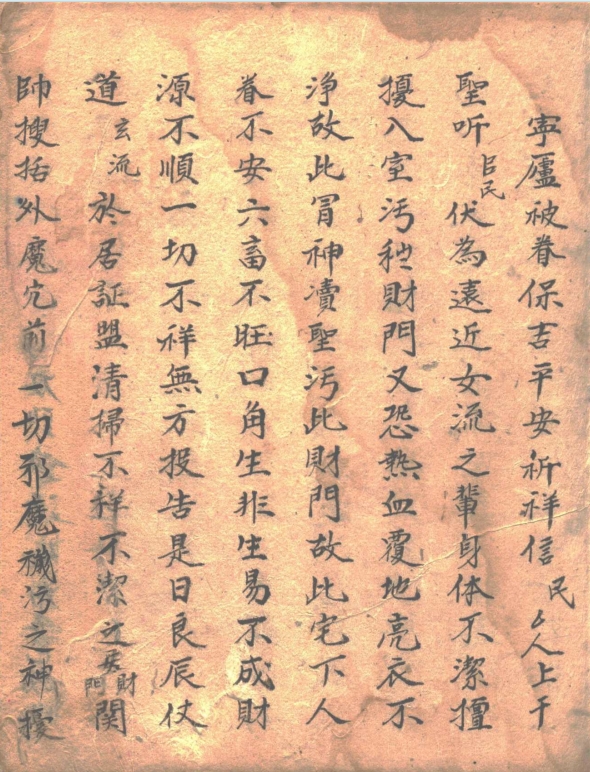 寧廬被眷保吉平安祈祥信民厶人上干
聖听臣民伏為遠近女流之輩身体不潔擅
擾入室汚穢財門又恐熱血覆地亮衣不
浄故此冒神凟聖汚此財門故此宅下人
眷不安六畜不旺口角生非生易不成財
源不順一切不祥無方投告是日良辰仗
道玄流於居証盟清掃不祥不潔之財門関
帥搜括外魔宄前一切邪魔禨汚之神擾